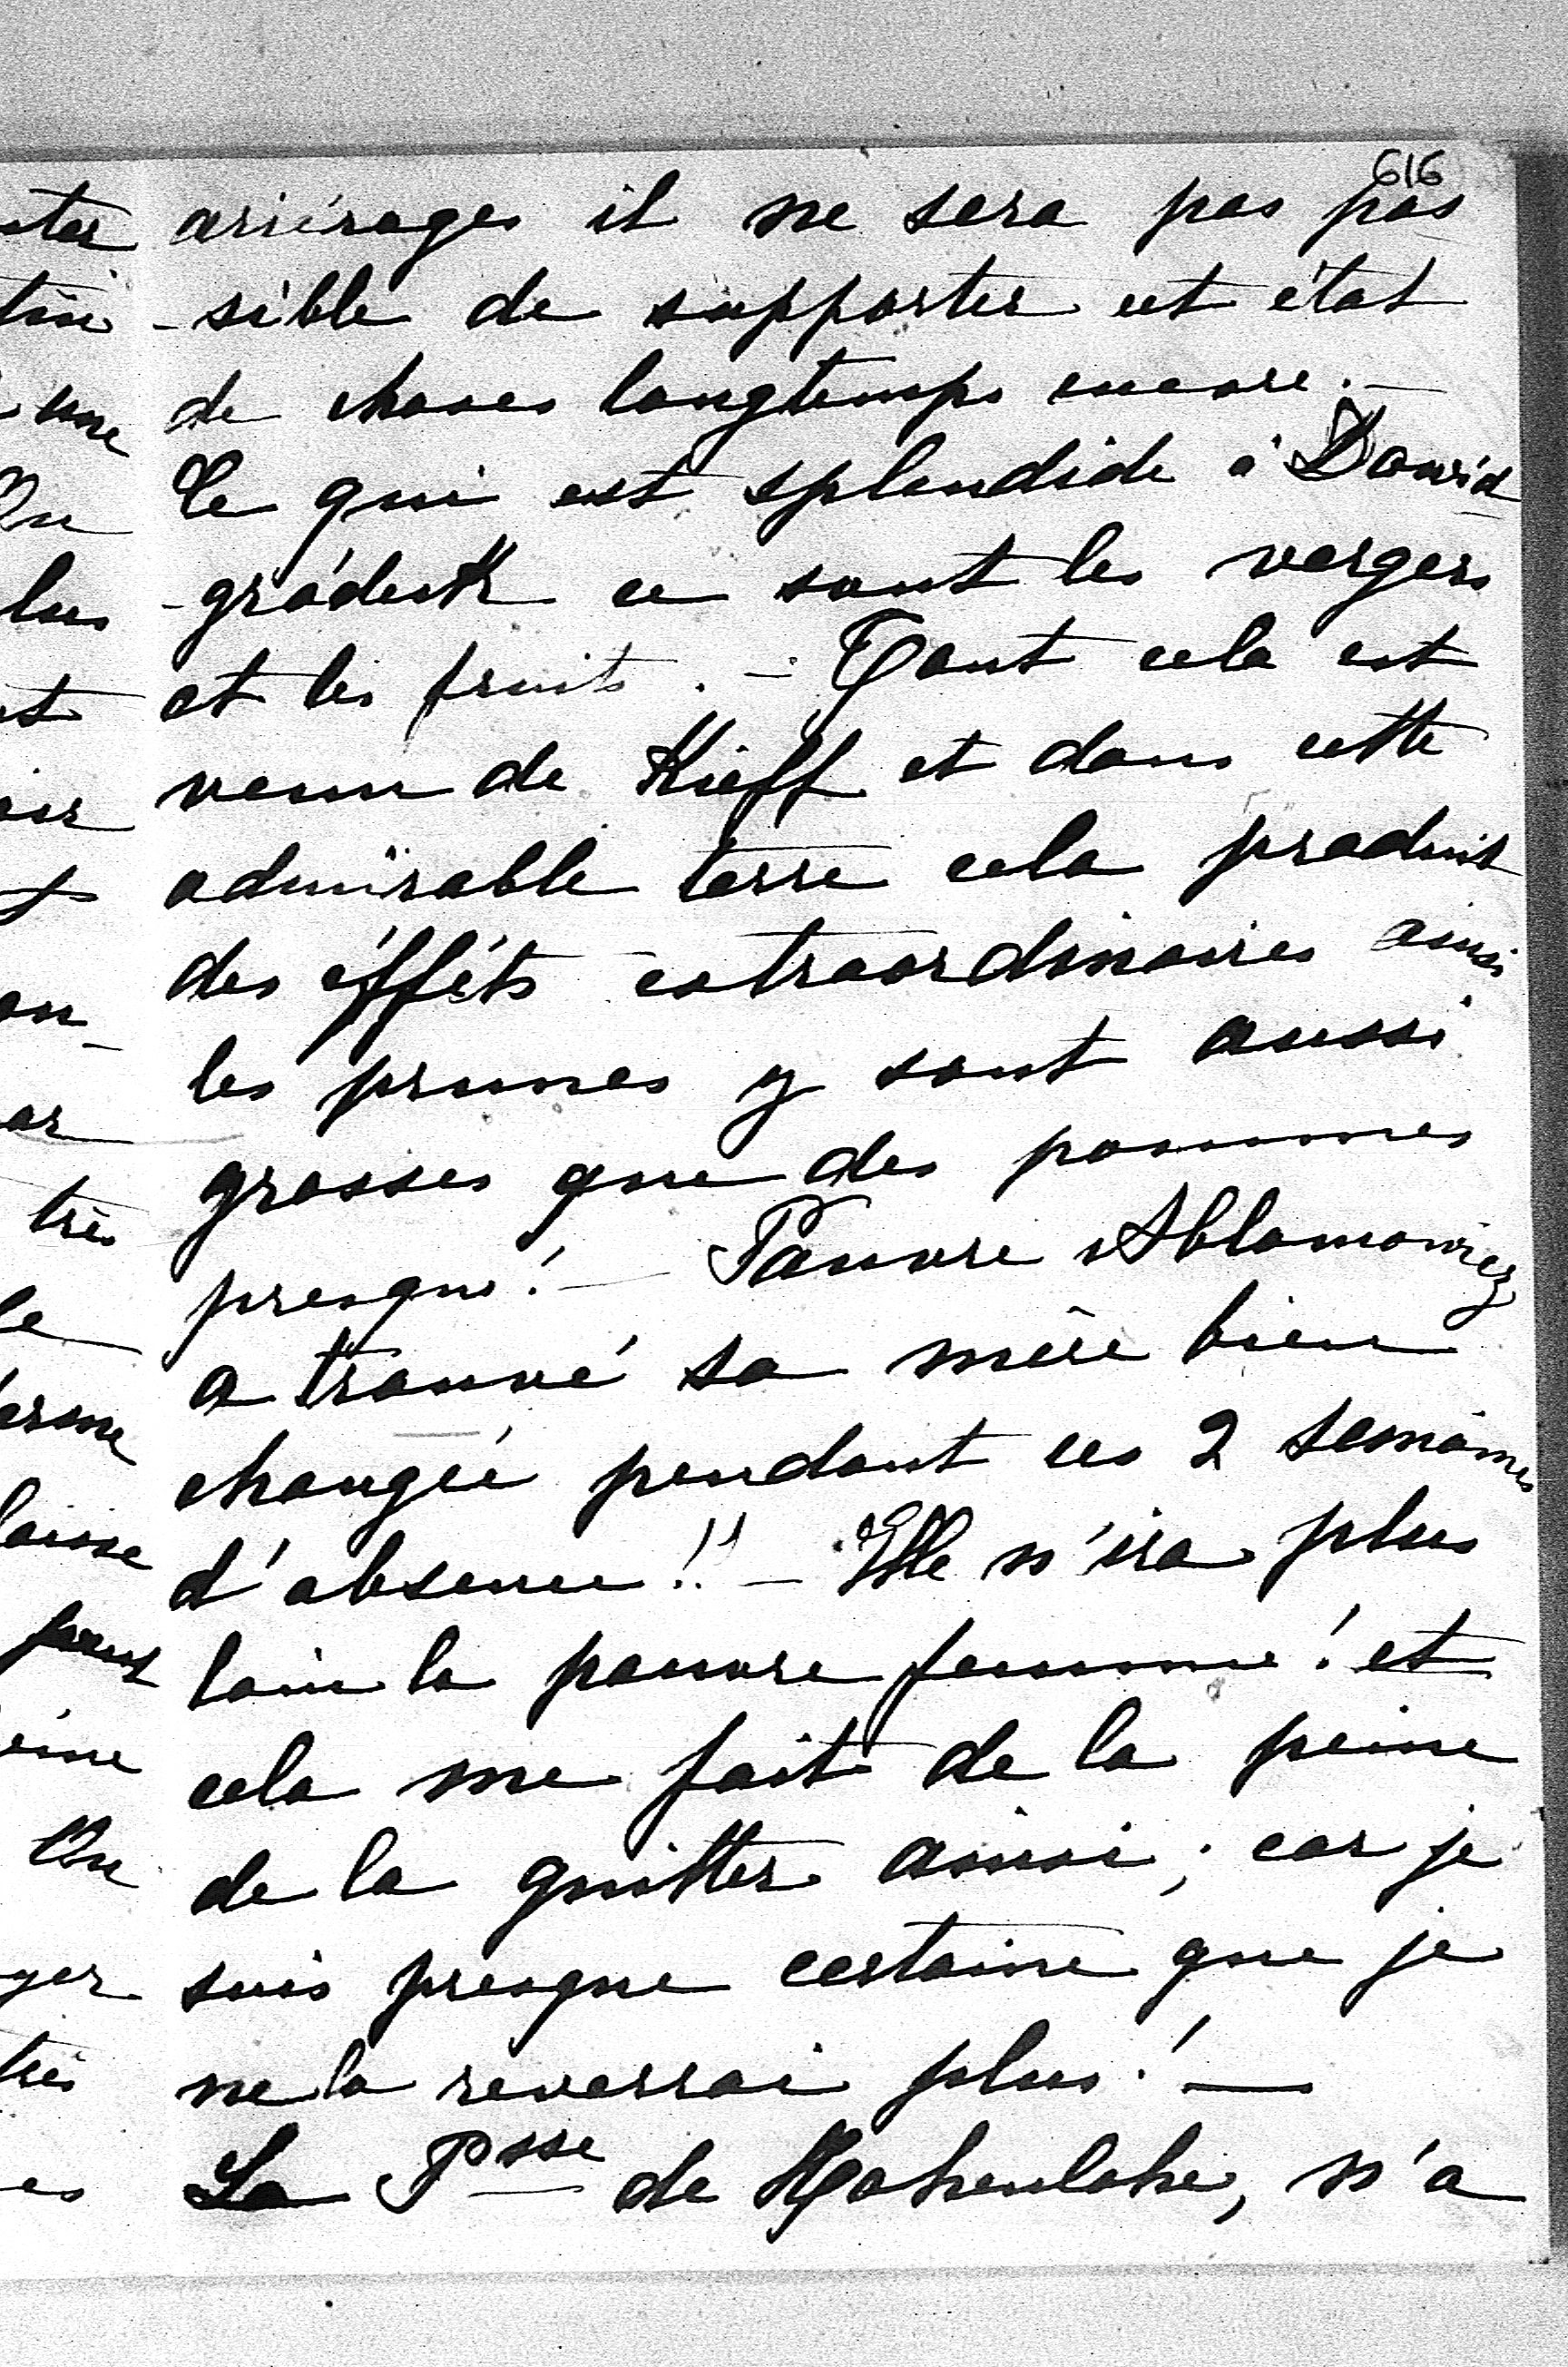 616
ariérages il ne sera pas pos
-sible de supporter cet état
de choses longtemps encore. —
Ce qui est splendide à Dawid
-gródeck ce sont les vergers
et les fruits. — Tout cela est
venu de Kieff et dans cette
admirable terre cela produit
des éfféts extraordinaires ainsi
les prunes y sont aussi
grosses que des pommes
presque! — Pauvre Ablamowicz
a trouvé sa mère bien
changée pendant ces 2 semaines
d'absence!! — Elle n'ira plus
loin la pauvre femme! et
cela me fait de la peine
de la quitter ainsi; car je
suis presque certaine que je
ne la reverrai plus! —
La Psse de Hohenlohe, n'a